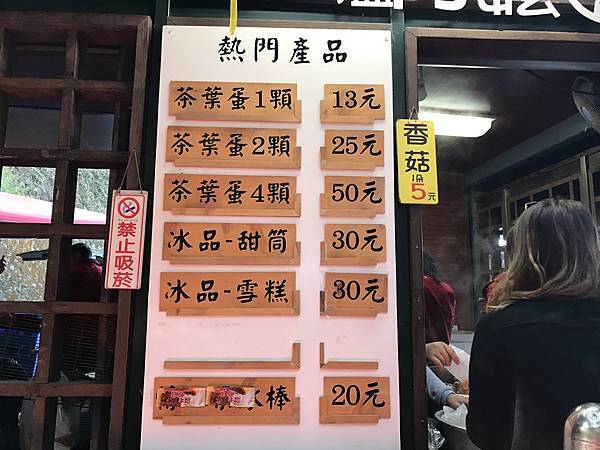 熱門產品
茶葉蛋1顆 13元
茶葉蛋2顆 25元
茶葉蛋4顆 50元
冰品-甜筒 30元
冰品-雪糕 30元
冰棒 20元
香菇
1朵
5元
禁止吸菸